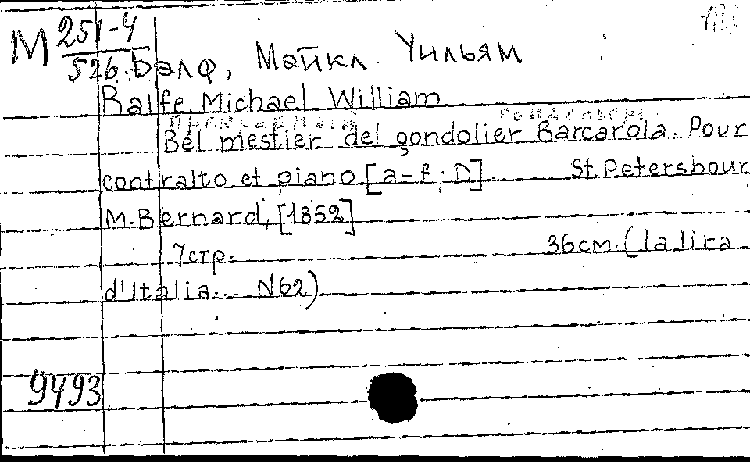 М 251-4
526
Бэлф, Мэйкл Уильям
Balfe Michael William
Bel mestier del gondolier Barcarola. Pour
contralto et piano [a-f; D] St. Petersbour
M. Bernard, [1852]
7 стр. 36 см. (La lira
d'Italia. N62)
9493